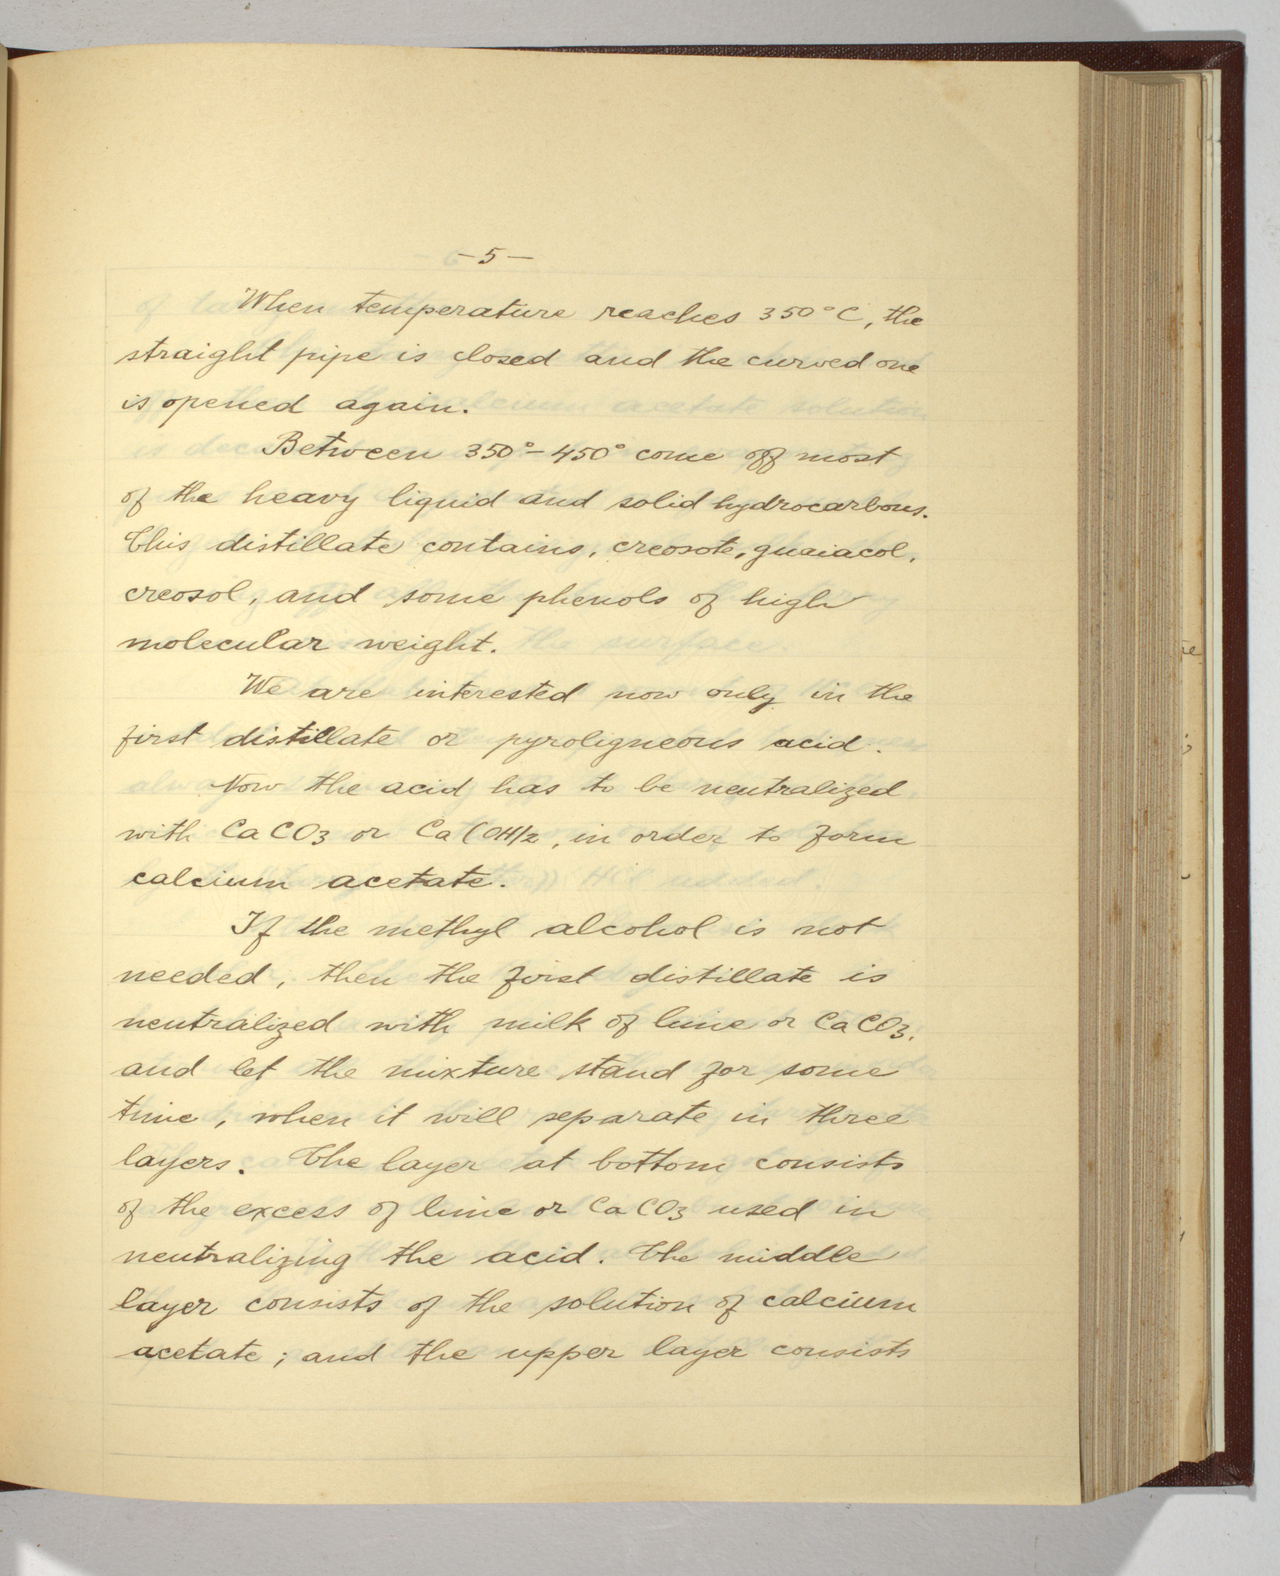 -5-
When temperature reaches 350°C, the
straight pipe is closed and the curved one
is opened again.
Between 350°-450° come off most
of the heavy liquid and solid hydrocarbons.
This distillate contains, creosote, guaiacol,
creosol, and some phenols of high
molecular weight.
We are interested now only in the
first distillate or pyroligneous acid.
Now the acid has to be neutralized
with CaCO3 or Ca(OH)2, in order to form
calcium acetate.
If the methyl alcohol is not
needed, then the first distillate is
neutralized with milk of lime or CaCO3,
and let the mixture stand for some
time, when it will separate in three
layers. The layer at bottom consists
of the excess of lime or CaCO3 used in
neutralizing the acid. The middle
layer consists of the solution of calcium
acetate; and the upper layer consists